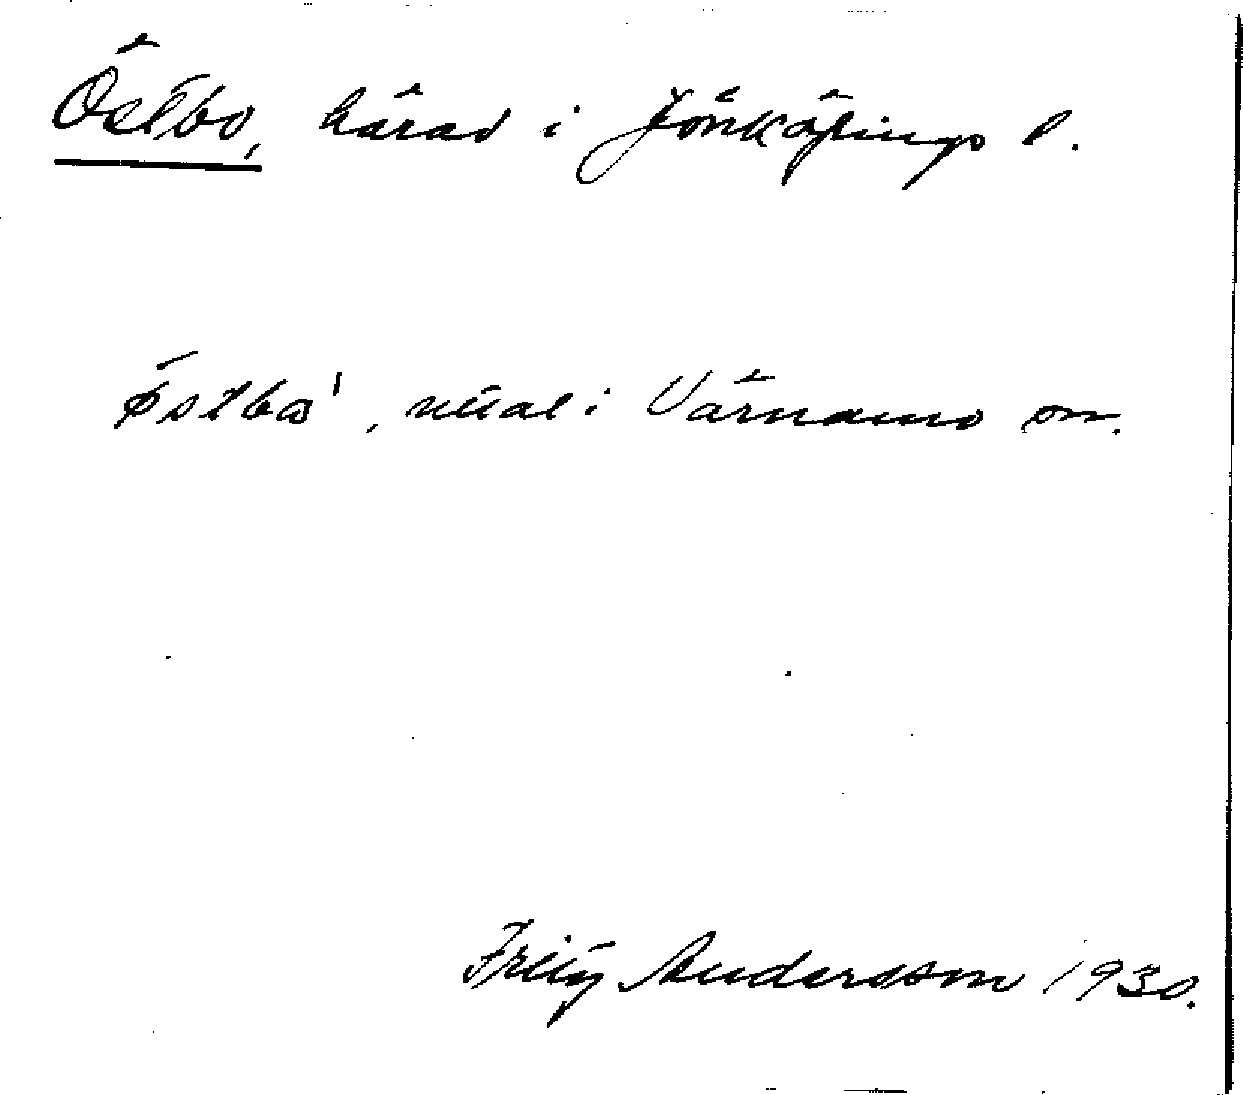 Östbo, härad i Jönköpings l.
östbo', uttal i Värnamo
Fritz Andersson 1930.